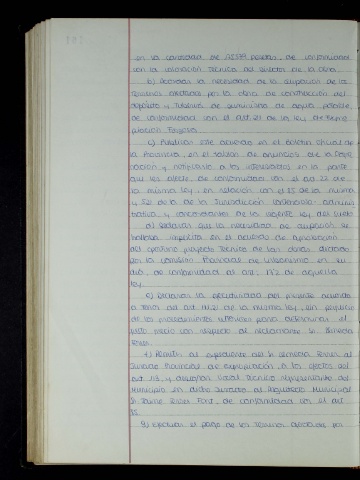 en la cantidad de pesetas, de conformidad
con la valoración técnica del Director de la Obra.
b) Declarar la necesidad de la ocupación de los
terrenos afectados por la obra de construcción del
depósito y tuberías de suministro de agua potable,
de conformidad con el art. 21 de la Ley de Expro-
piación Forzosa.
c) Publicar este acuerdo en el Boletín Oficial de
la Provincia, en el tablón de anuncios de la Corpo-
ración y notificarlo a los interesados en la parte
que les afecte, de conformidad con el art. 22 de
la misma ley, en relación con el de la misma
y 52 de la de la Jurisdicción Contencioso-adminis-
trativa y concordantes de la vigente Ley del suelo
d) Declarar que la necesidad de ocupación se
hallaba implícita en el acuerdo de aprobación
del oportuno proyecto técnico de las obras dictado
por la Comisión Provincial de Urbanismo en su
día, de conformidad al art. de aquella
ley.
e) Declarar la ejecutividad del presente acuerdo
a tenor del art. de la misma ley, sin perjuicio
de los procedimientos ulteriores para determinar el
justo precio con respecto al reclamante Sr. Cerveda
Ferrer.
f) Remitir el expediente del Sr. Cerveda Ferrer al
Jurado Provincial de expropiación, a los efectos del
art. y designar Vocal técnico representante del
Municipio en dicho Jurado, al Arquitecto Municipal
D. Jaime Ferrer Font, de conformidad con el art.
g) Efectuar el pago de los terrenos afectados por